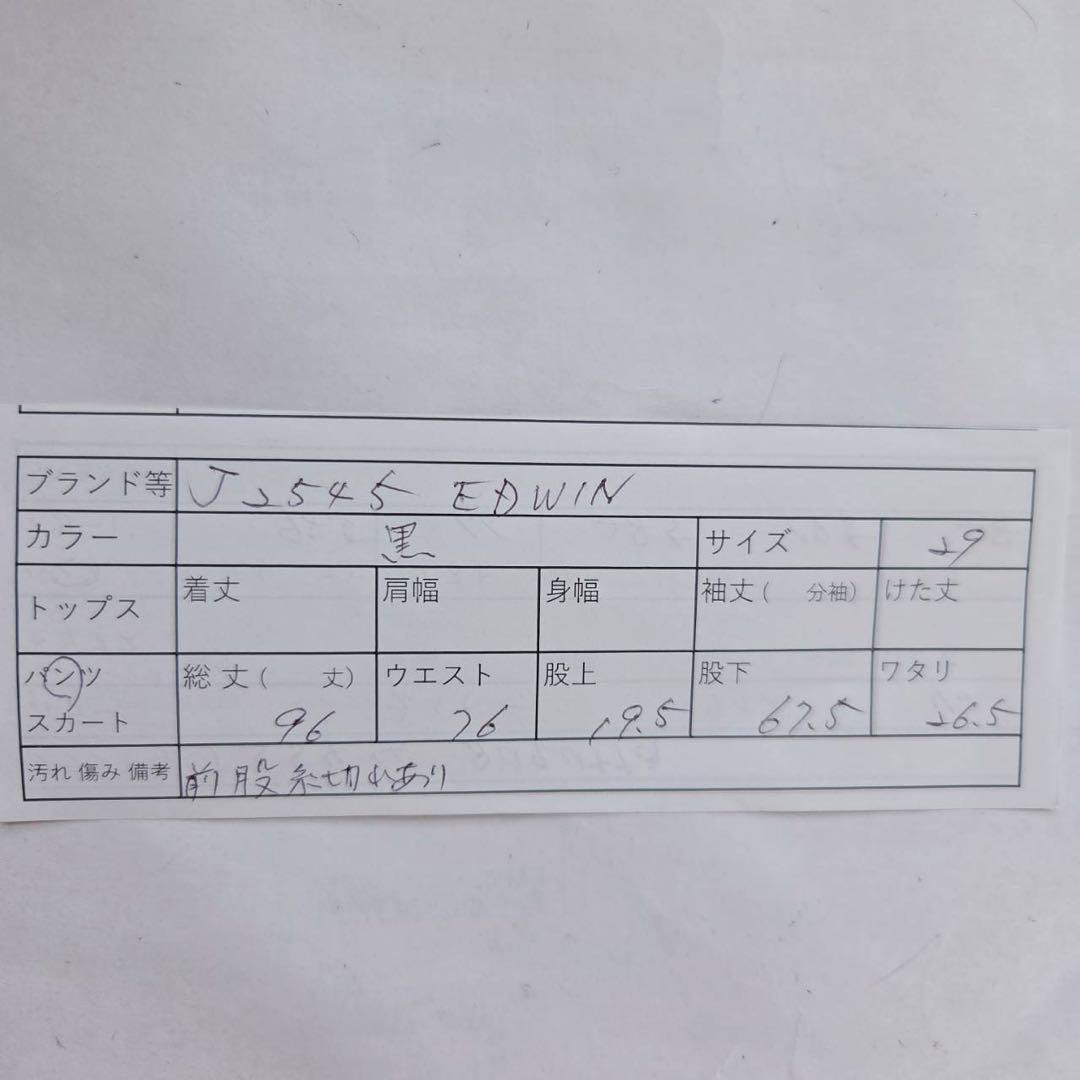 ブランド等 J2545 EDWIN
カラー 黒 サイズ 29
トップス 着丈 肩幅 身幅 袖丈( 分袖) けた丈
パンツ 総丈( 丈) ウエスト 股上 股下 ワタリ
スカート 96 76 19.5 67.5 26.5
汚れ 傷み 備考 前股糸切れあり